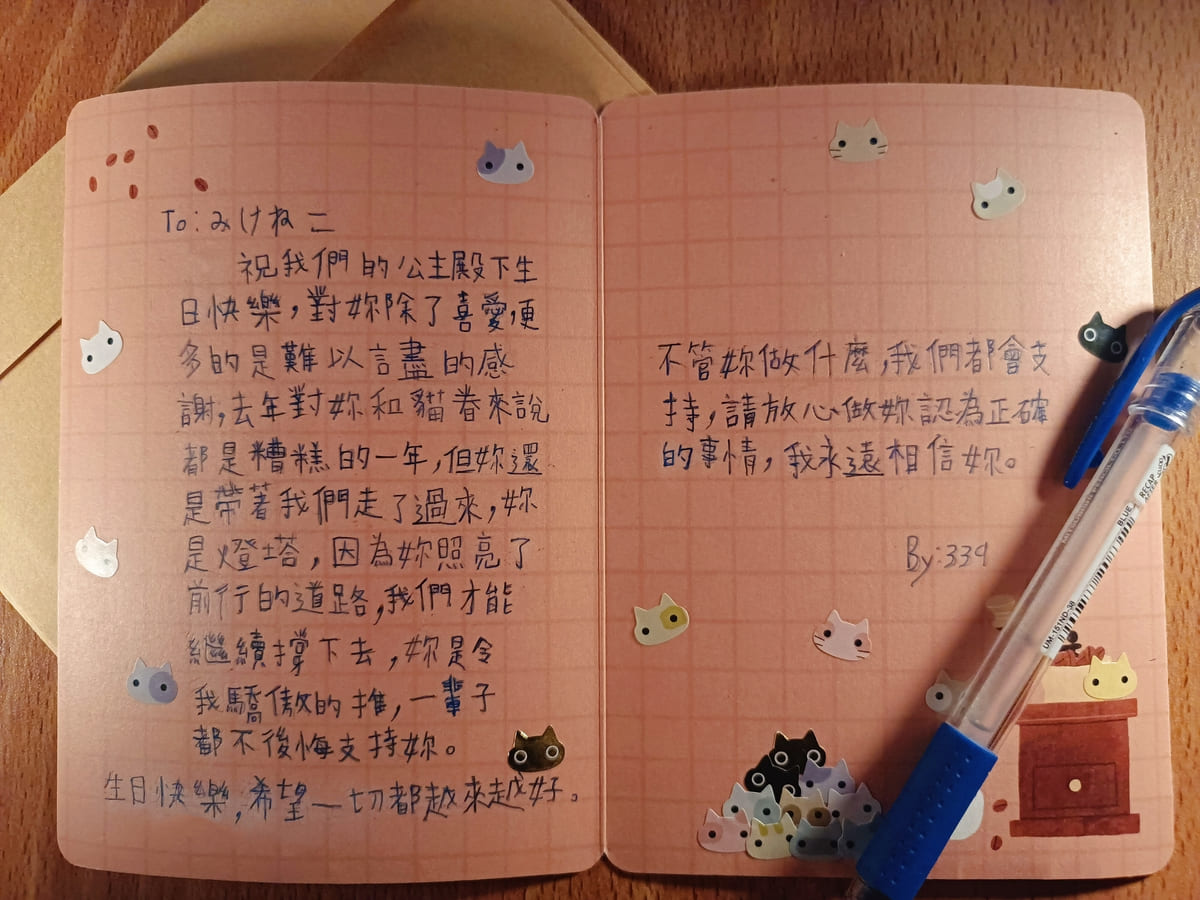 To：みけねこ
祝我們的公主殿下生
日快樂，對妳除了喜愛更
多的是難以言盡的感
謝，去年對妳和貓眷來說
都是糟糕的一年，但妳還
是帶著我們走了過來，妳
是燈塔，因為妳照亮了
前行的道路，我們才能
繼續撐下去，妳是令
我驕傲的推，一輩子
都不後悔支持妳。
生日快樂，希望一切都越來越好。
不管妳做什麼，我們都會支
持，請放心做妳認為正確
的事情，我永遠相信妳。
By：339
UM-151ND-38
BLUE
RECAP